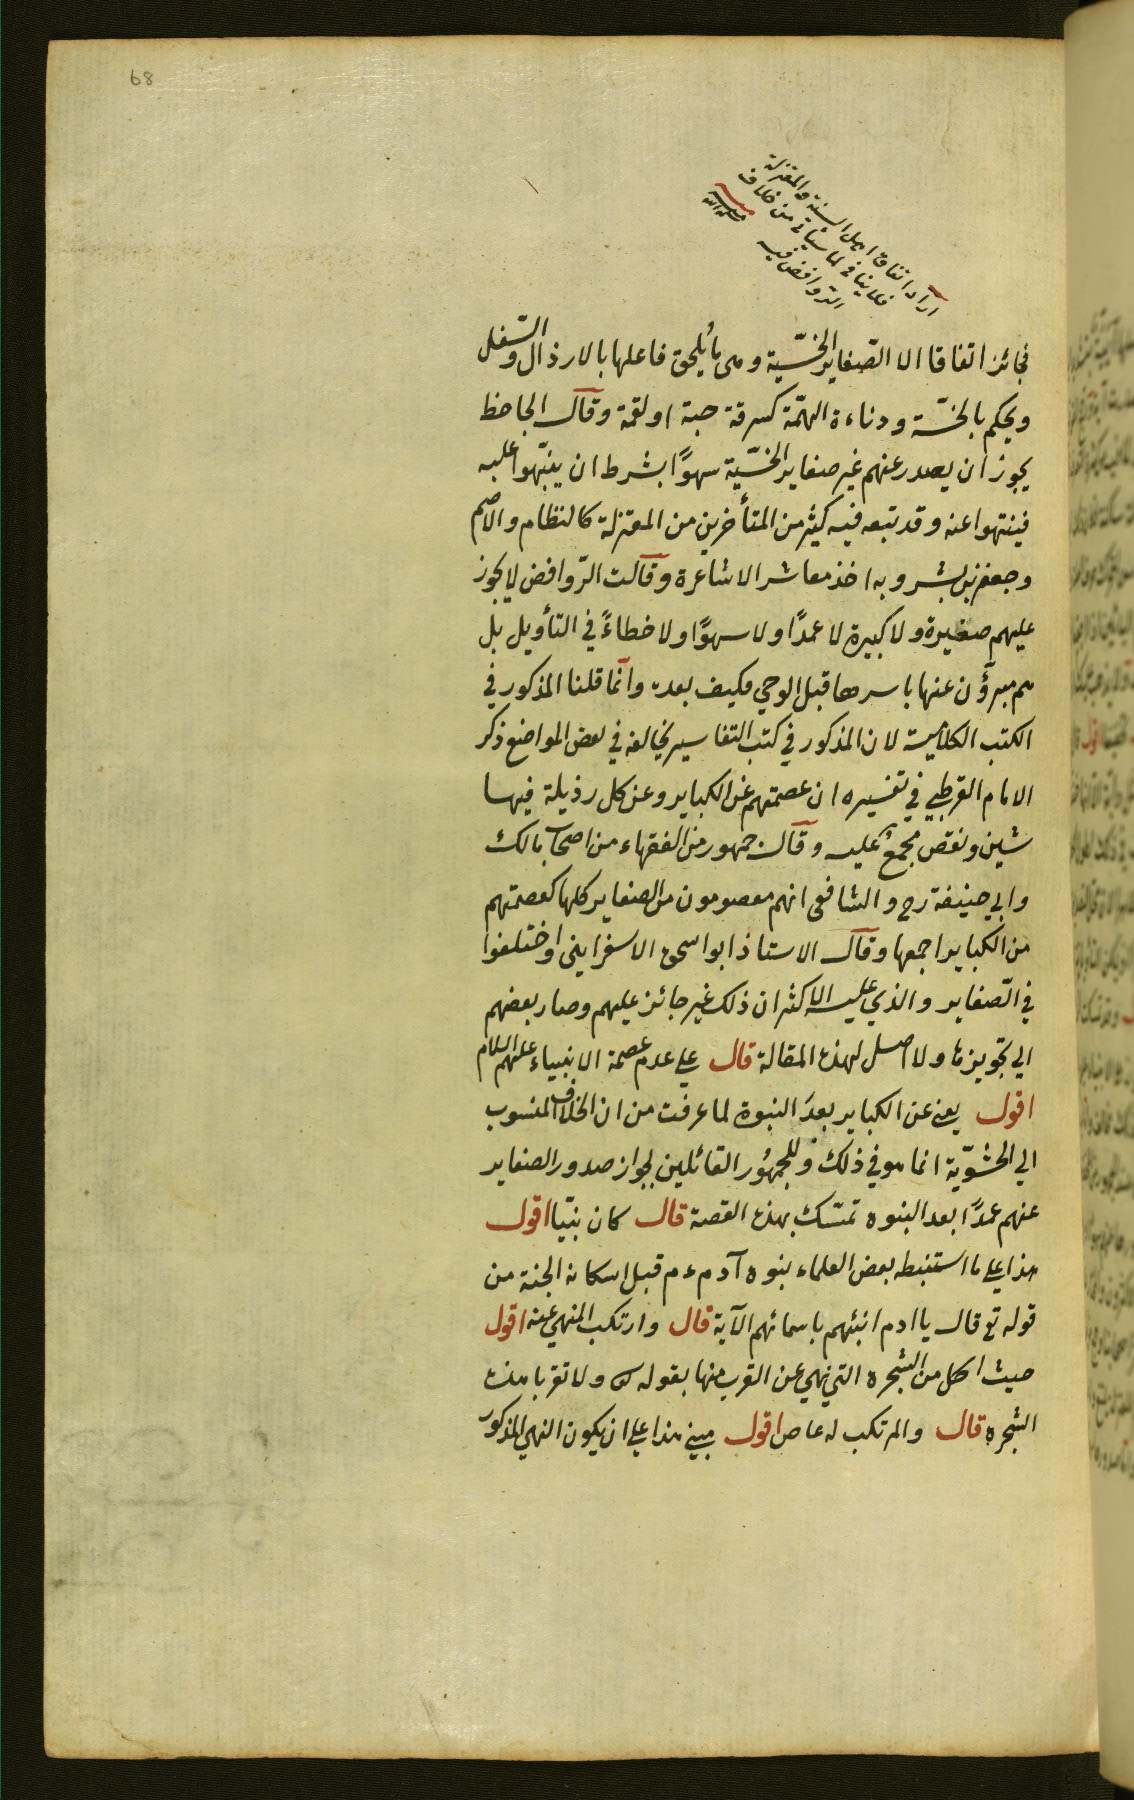 68
اراد اتفاق اهل السنة والمعتزلة
فلا ينافي لما سيأتي من خلاف
الروافض فيه
منه
فجائز اتفاقا الا الصّغاير الخسّية وهى ما يُلحق فاعلها بالارذال والسّفل
ويحكم بالخسّة ودناءة الهمّة كسرقة حبة او لقمة وقال الجاحظ
يجوز ان يصدر عنهم غير صغاير الخسّية سهوًا بشرط ان ينبّهوا عليه
فينتهوا عنه وقد تبعه فيه كثير من المتأخرين من المعتزلة كالنظام والاصم
وجعفر بن بشر وبه اخذ معاشر الاشاعرة وقالت الرّوافض لا يجوز
عليهم صغيرة ولا كبيرة لا عمدًا ولا سهوًا ولا خطاءً في التأويل بل
هم مبرؤن عنها باسرها قبل الوحي فكيف بعده وانما قلنا المذكور في
الكتب الكلامية لان المذكور في كتب التفاسير يخالفه في بعض المواضع ذكر
الامام القرطبي في تفسيره ان عصمتهم عن الكباير وعن كل رذيلة فيها
شين ونقص مجمعٌ عليه وقال جمهور من الفقهاء من اصحاب مالك
وابي حنيفة رح والشافعى انهم معصومون من الصغاير كلها كعصمتهم
من الكباير اجمعها وقال الاستاذ ابو اسحق الاسفراينى واختلفوا
في الصّغاير والذي عليه الاكثر ان ذلك غير جائز عليهم وصار بعضهم
الي تجويزها ولا اصل لهذه المقالة قال علي عدم عصمة الانبياء عليهم السلام
اقول يعني عن الكباير بعدَ النبوة لما عرفت من ان الخلاف المنسوب
الي الحشوّية انما هو في ذلك وللجمهُور القائلين بجواز صدور الصغاير
عنهم عمدًا بعد النبوه تمسّك بهذه القصة قال كان نبيّا اقول
هذا علي ما استنبطه بعض العلماء نبوه آدم ءم قبل اسكانه الجنة من
قوله تع قال يا ادم انبئهم باسمائهم الآية قال وارتكب المنهي عنه اقول
حيث اكل من الشجره التي نهي عن القرب منها بقوله تع ولا تقربا هذه
الشجره قال والمرتكب له عاص اقول مبنى هذا علي ان يكون النهي المذكور